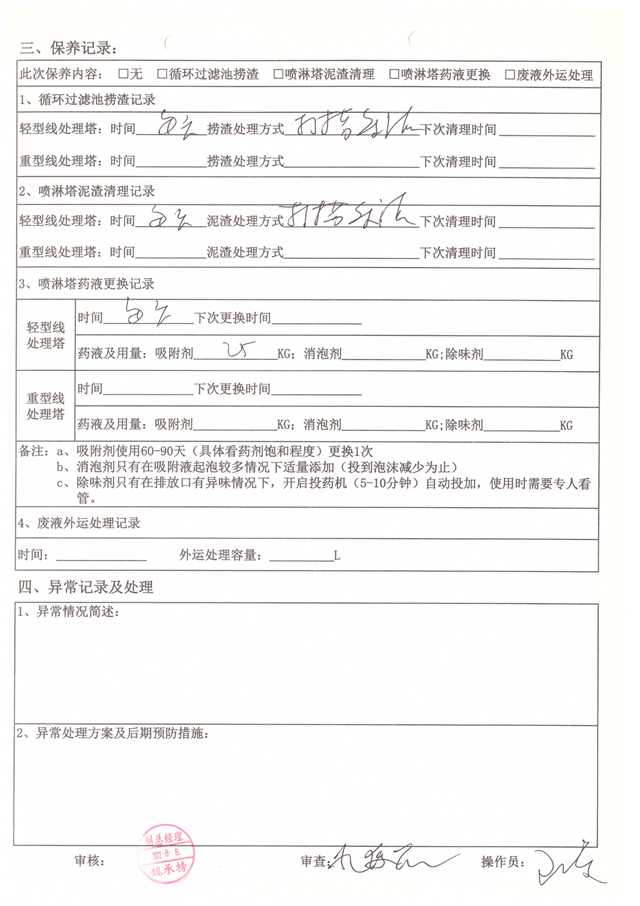 三、保养记录：
此次保养内容： □无 □循环过滤池捞渣 □喷淋塔泥渣清理 □喷淋塔药液更换 □废液外运处理
1、循环过滤池捞渣记录
轻型线处理塔：时间 每天 捞渣处理方式 打捞 下次清理时间
重型线处理塔：时间 捞渣处理方式 下次清理时间
2、喷淋塔泥渣清理记录
轻型线处理塔：时间 每天 泥渣处理方式 打捞 下次清理时间
重型线处理塔：时间 泥渣处理方式 下次清理时间
3、喷淋塔药液更换记录
轻型线处理塔
时间 每天 下次更换时间
药液及用量：吸附剂 25 KG；消泡剂 KG;除味剂 KG
重型线处理塔
时间 下次更换时间
药液及用量：吸附剂 KG；消泡剂 KG;除味剂 KG
备注：a、吸附剂使用60-90天（具体看药剂饱和程度）更换1次
b、消泡剂只有在吸附液起泡较多情况下适量添加（投到泡沫减少为止）
c、除味剂只有在排放口有异味情况下，开启投药机（5-10分钟）自动投加，使用时需要专人看
管。
4、废液外运处理记录
时间： 外运处理容量： L
四、异常记录及处理
1、异常情况简述：
2、异常处理方案及后期预防措施：
审核： 审查： 操作员：